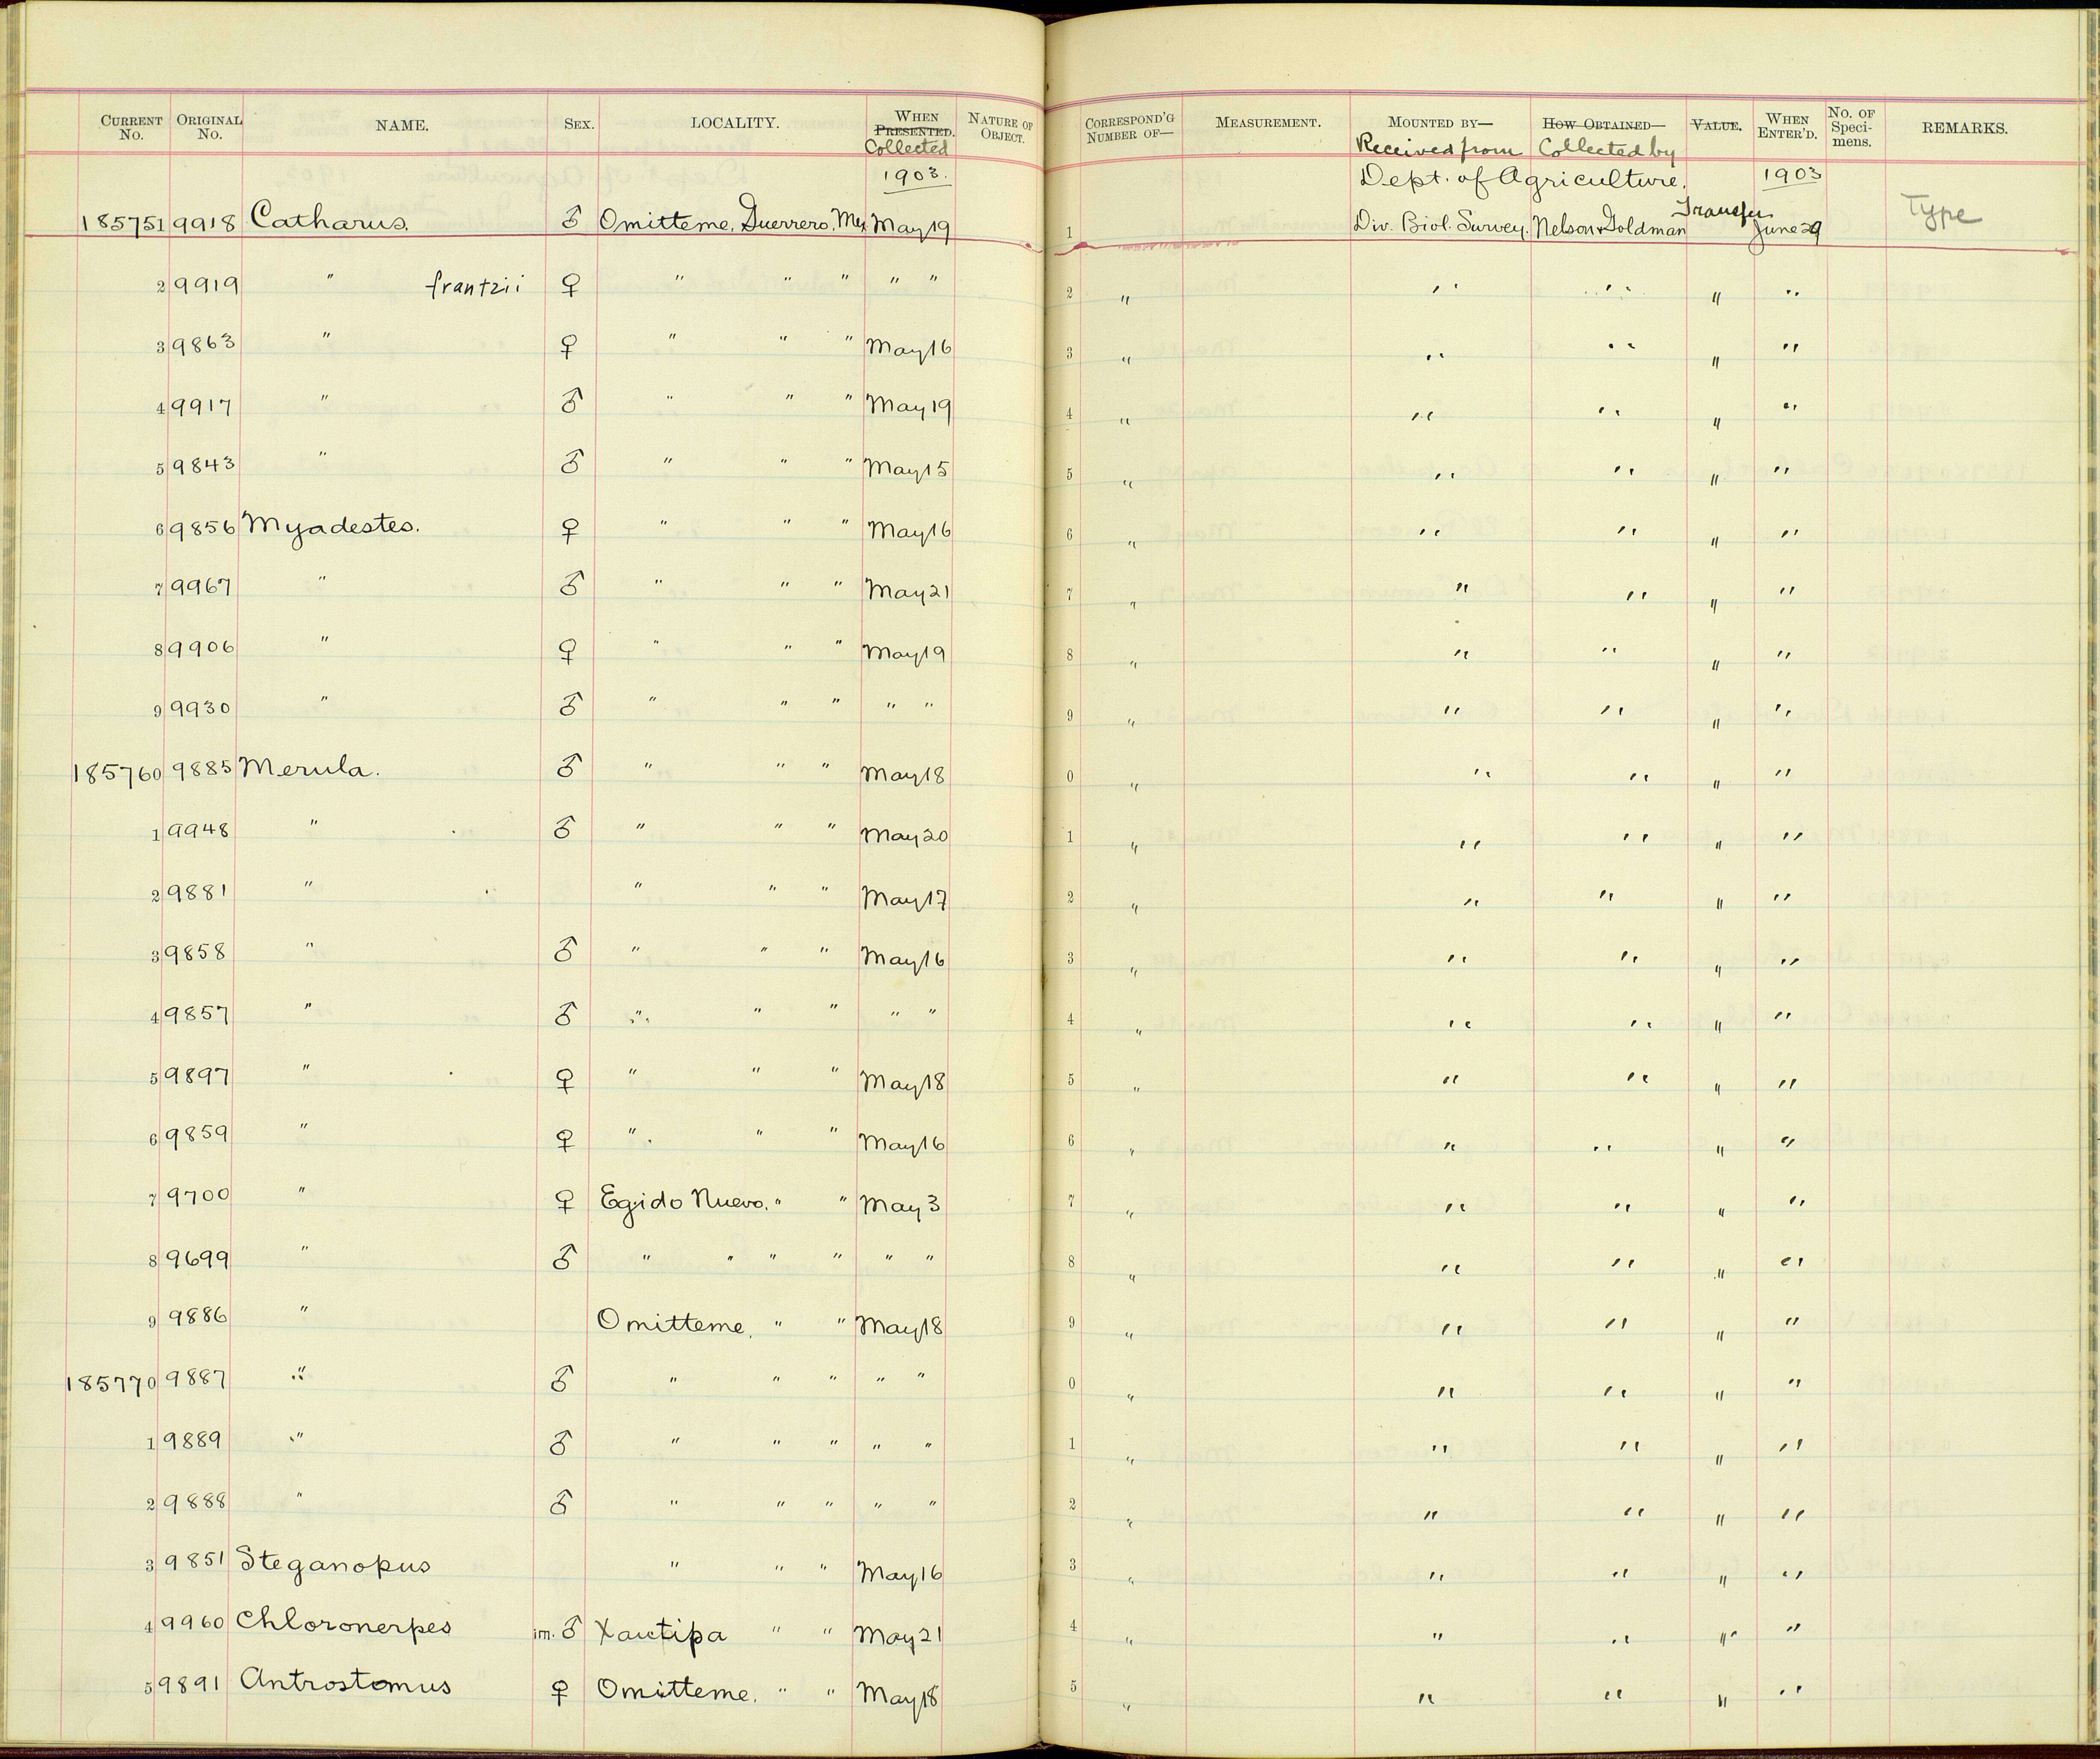 CURRENT No. ORIGINAL No. NAME. SEX. LOCALITY. WHEN PRESENTED. Collected NATURE OF OBJECT. CORRESPOND'G NUMBER OF— MEASUREMENT. MOUNTED BY— Received from HOW OBTAINED— Collected by VALUE. WHEN ENTER'D. No. OF Speci- mens. REMARKS.
1903. Dept. of Agriculture. 1903
185751 9918 Catharus. ♂ Omitteme, Guerrero, Mex. May 19 1 Div. Biol. Survey. Nelson & Goldman Transfer June 29 Type
2 9919 " frantzii ♀ " " " " " 2 " " " " "
3 9863 " ♀ " " " May 16 3 " " " " "
4 9917 " ♂ " " " May 19 4 " " " " "
5 9843 " ♂ " " " May 15 5 " " " " "
6 9856 Myadestes. ♀ " " " May 16 6 " " " " "
7 9967 " ♂ " " " May 21 7 " " " " "
8 9906 " ♀ " " " May 19 8 " " " " "
9 9930 " ♂ " " " " " 9 " " " " "
185760 9885 Merula. ♂ " " " May 18 0 " " " " "
1 9948 " ♂ " " " May 20 1 " " " " "
2 9881 " " " " May 17 2 " " " " "
3 9858 " ♂ " " " May 16 3 " " " " "
4 9857 " ♂ " " " " " 4 " " " " "
5 9897 " ♀ " " " May 18 5 " " " " "
6 9859 " ♀ " " " May 16 6 " " " " "
7 9700 " ♀ Egido Nuevo. " " May 3 7 " " " " "
8 9699 " ♂ " " " " " " 8 " " " " "
9 9886 " Omitteme. " " May 18 9 " " " " "
185770 9887 " ♂ " " " " " 0 " " " " "
1 9889 " ♂ " " " " " 1 " " " " "
2 9888 " ♂ " " " " " 2 " " " " "
3 9851 Steganopus " " " May 16 3 " " " " "
4 9960 Chloronerpes im. ♂ Xautipa " " May 21 4 " " " " "
5 9891 Antrostomus ♀ Omitteme. " " May 18 5 " " " " "